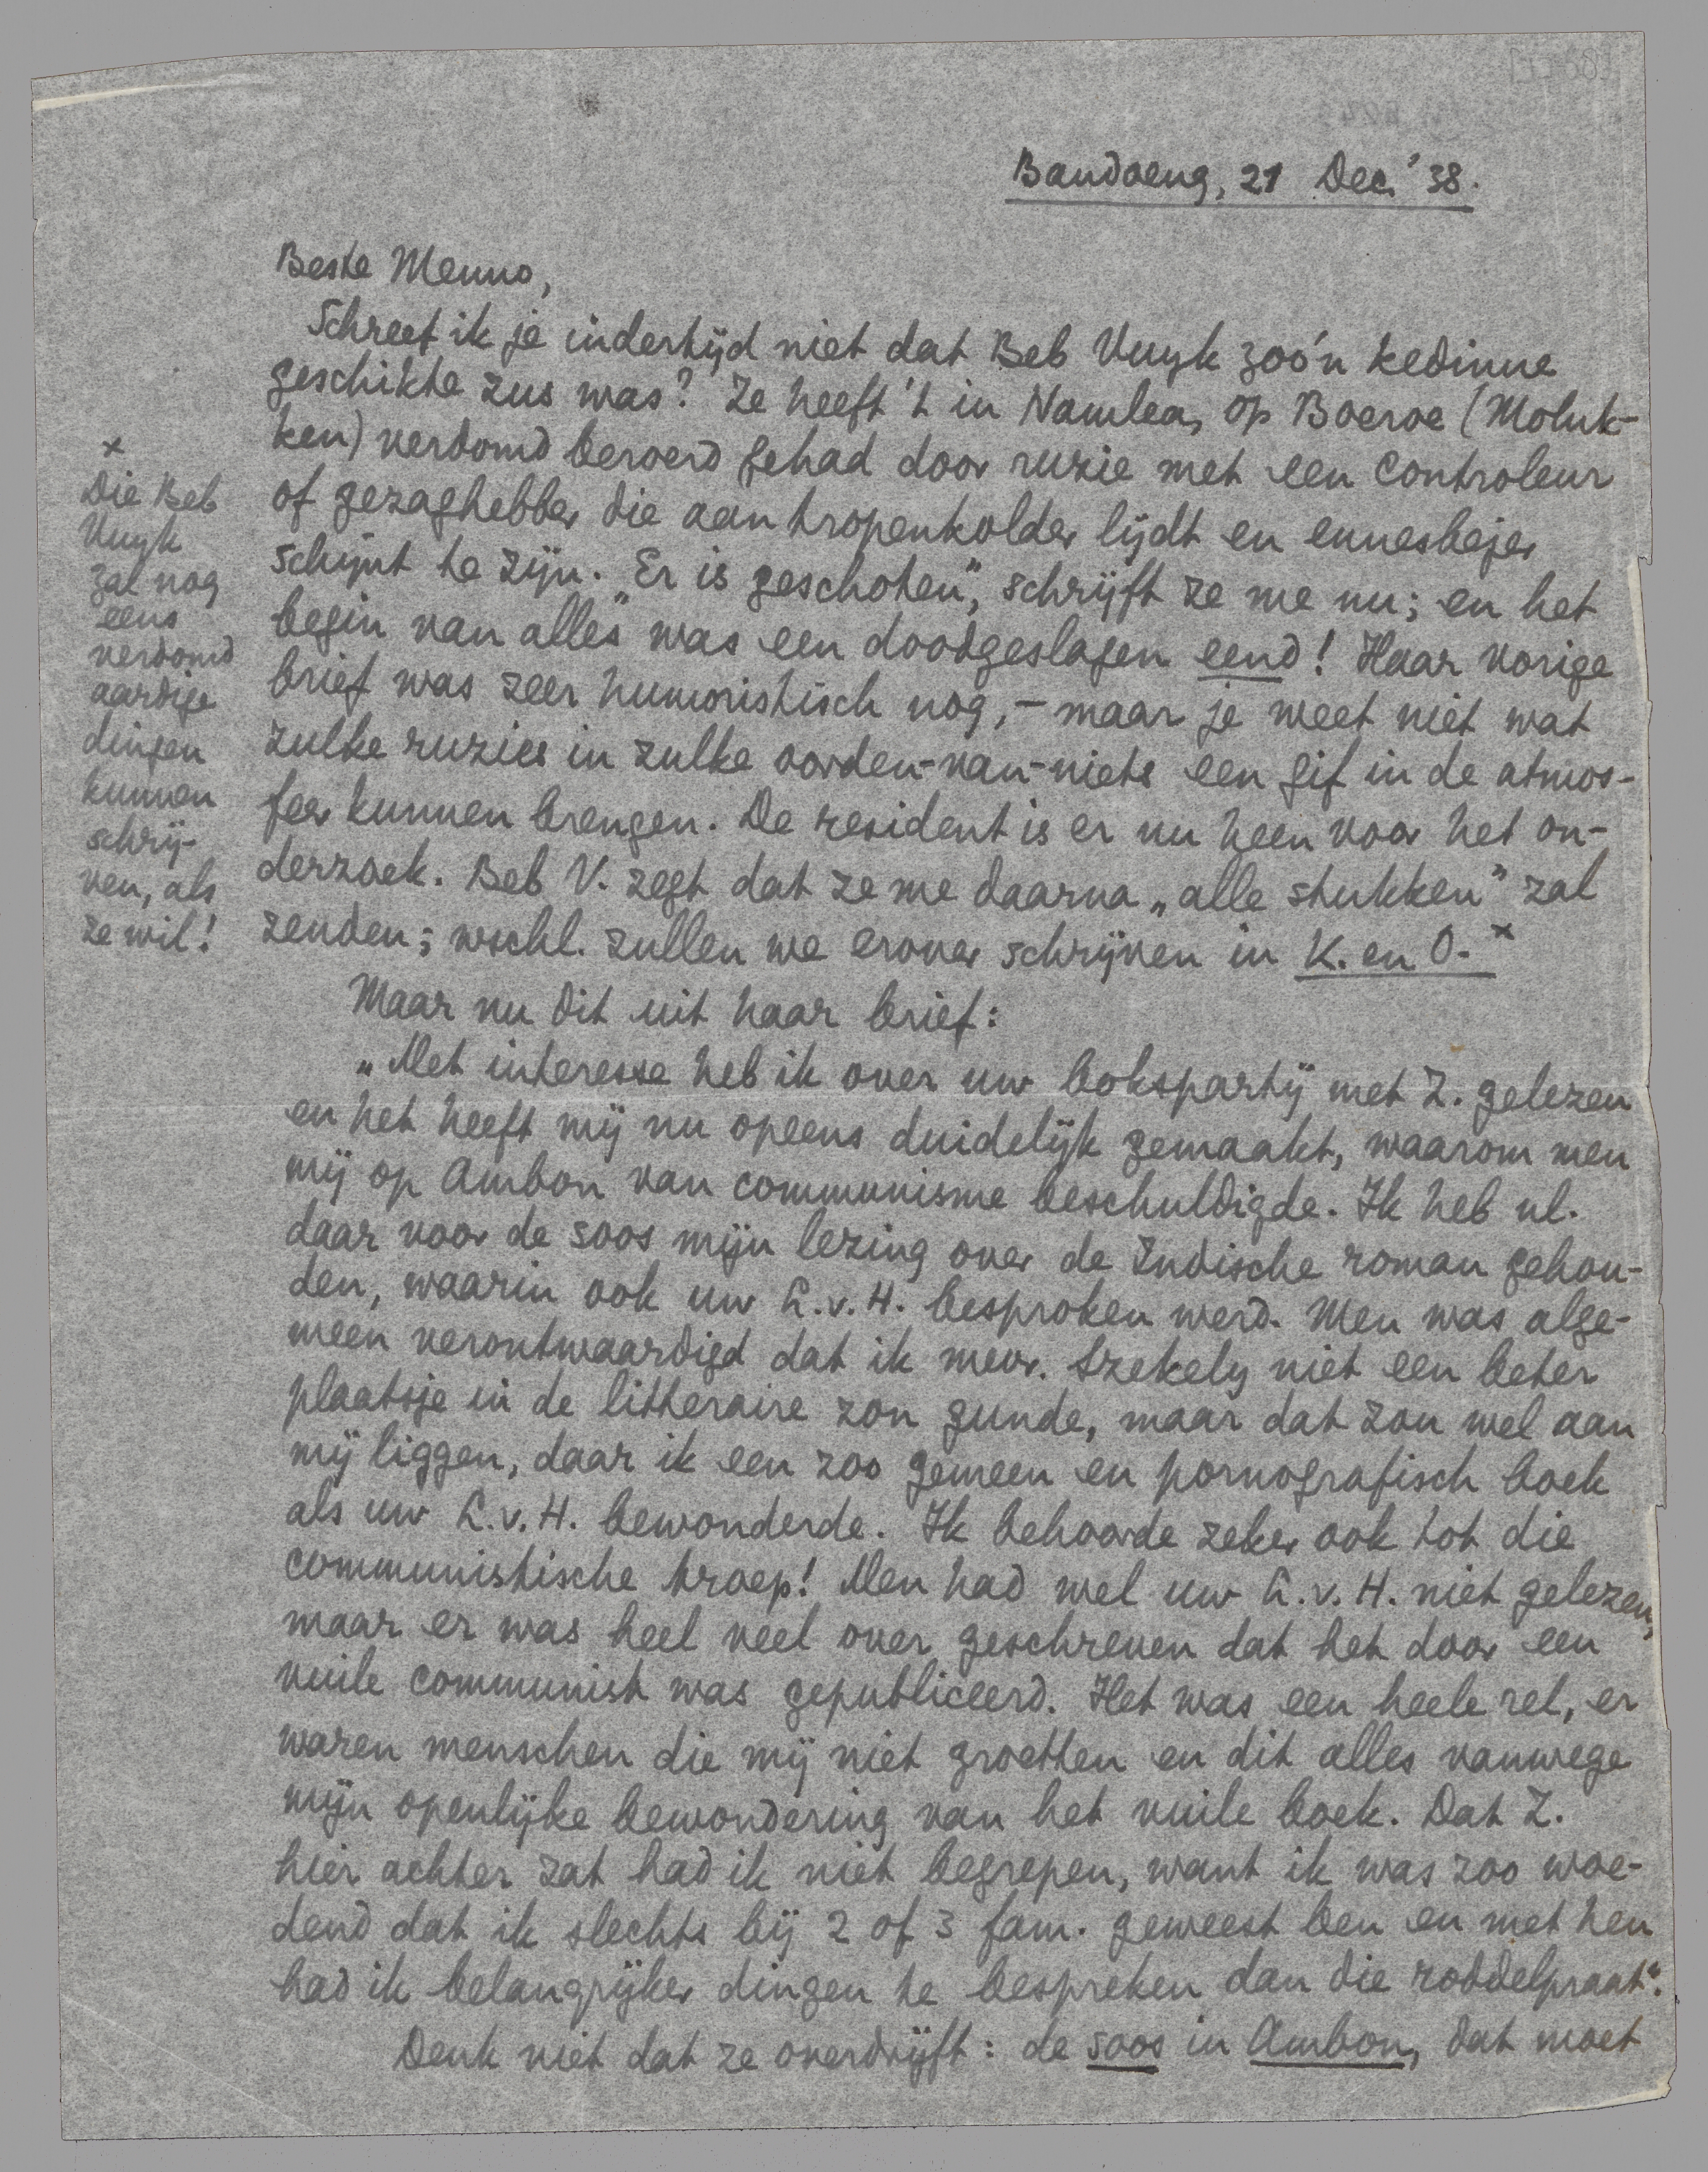 Bandoeng, 21 Dec. '38.
Beste Menno,
Schreef ik je indertijd niet dat Beb Vuyk zoo'n kedinne
geschikte zus was? Ze heeft 't in Namlea, op Boeroe (Moluk-
ken) verdomd beroerd gehad door ruzie met een controleur
of gezaghebber die aan tropenkolder lijdt en ennesbejer
schijnt te zijn. „Er is geschoten", schrijft ze me nu; en het
begin van alles was een doodgeslagen eend! Haar vorige
brief was zeer humoristisch nog, - maar je weet niet wat
zulke ruzies in zulke oorden-van-niets een gif in de atmos-
feer kunnen brengen. De resident is er nu heen voor het on-
derzoek. Beb V. zegt dat ze me daarna „alle stukken" zal
zenden; wschl. zullen we erover schrijven in K. en O. x
x
Die Beb
Vuyk
zal nog
eens
verdomd
aardige
dingen
kunnen
schrij-
ven, als
ze wil!
Maar nu dit uit haar brief:
„Met interesse heb ik over uw bokspartij met Z. gelezen
en het heeft mij nu opeens duidelijk gemaakt, waarom men
mij op Ambon van communisme beschuldigde. Ik heb nl.
daar voor de soos mijn lezing over de Indische roman gehou-
den, waarin ook uw L.v.H. besproken werd. Men was alge-
meen verontwaardigd dat ik mevr. Szekely niet een beter
plaatsje in de litteraire zon gunde, maar dat zou wel aan
mij liggen, daar ik een zoo gemeen en pornografisch boek
als uw L.v.H. bewonderde. Ik behoorde zeker ook tot die
communistische troep! Men had wel uw L.v.H. niet gelezen,
maar er was heel veel over geschreven dat het door een
vuile communist was gepubliceerd. Het was een heele rel, er
waren menschen die mij niet groetten en dit alles vanwege
mijn openlijke bewondering van het vuile boek. Dat Z.
hier achter zat had ik niet begrepen, want ik was zoo woe-
dend dat ik slechts bij 2 of 3 fam. geweest ben en met hen
had ik belangrijker dingen te bespreken dan die roddelpraat".
Denk niet dat ze overdrijft: de soos in Ambon, dat moet